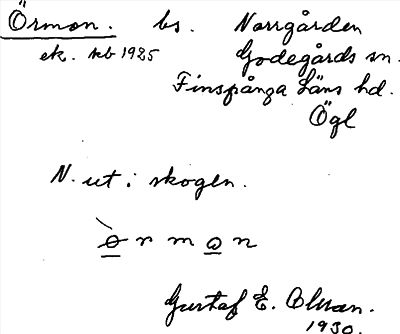 Örmon. bs. Norrgården
ek. kb 1925 Godegårds sn.
Finspånga Läns hd.
Ögl
N. ut i skogen.
Gustaf E. Olson.
1930.